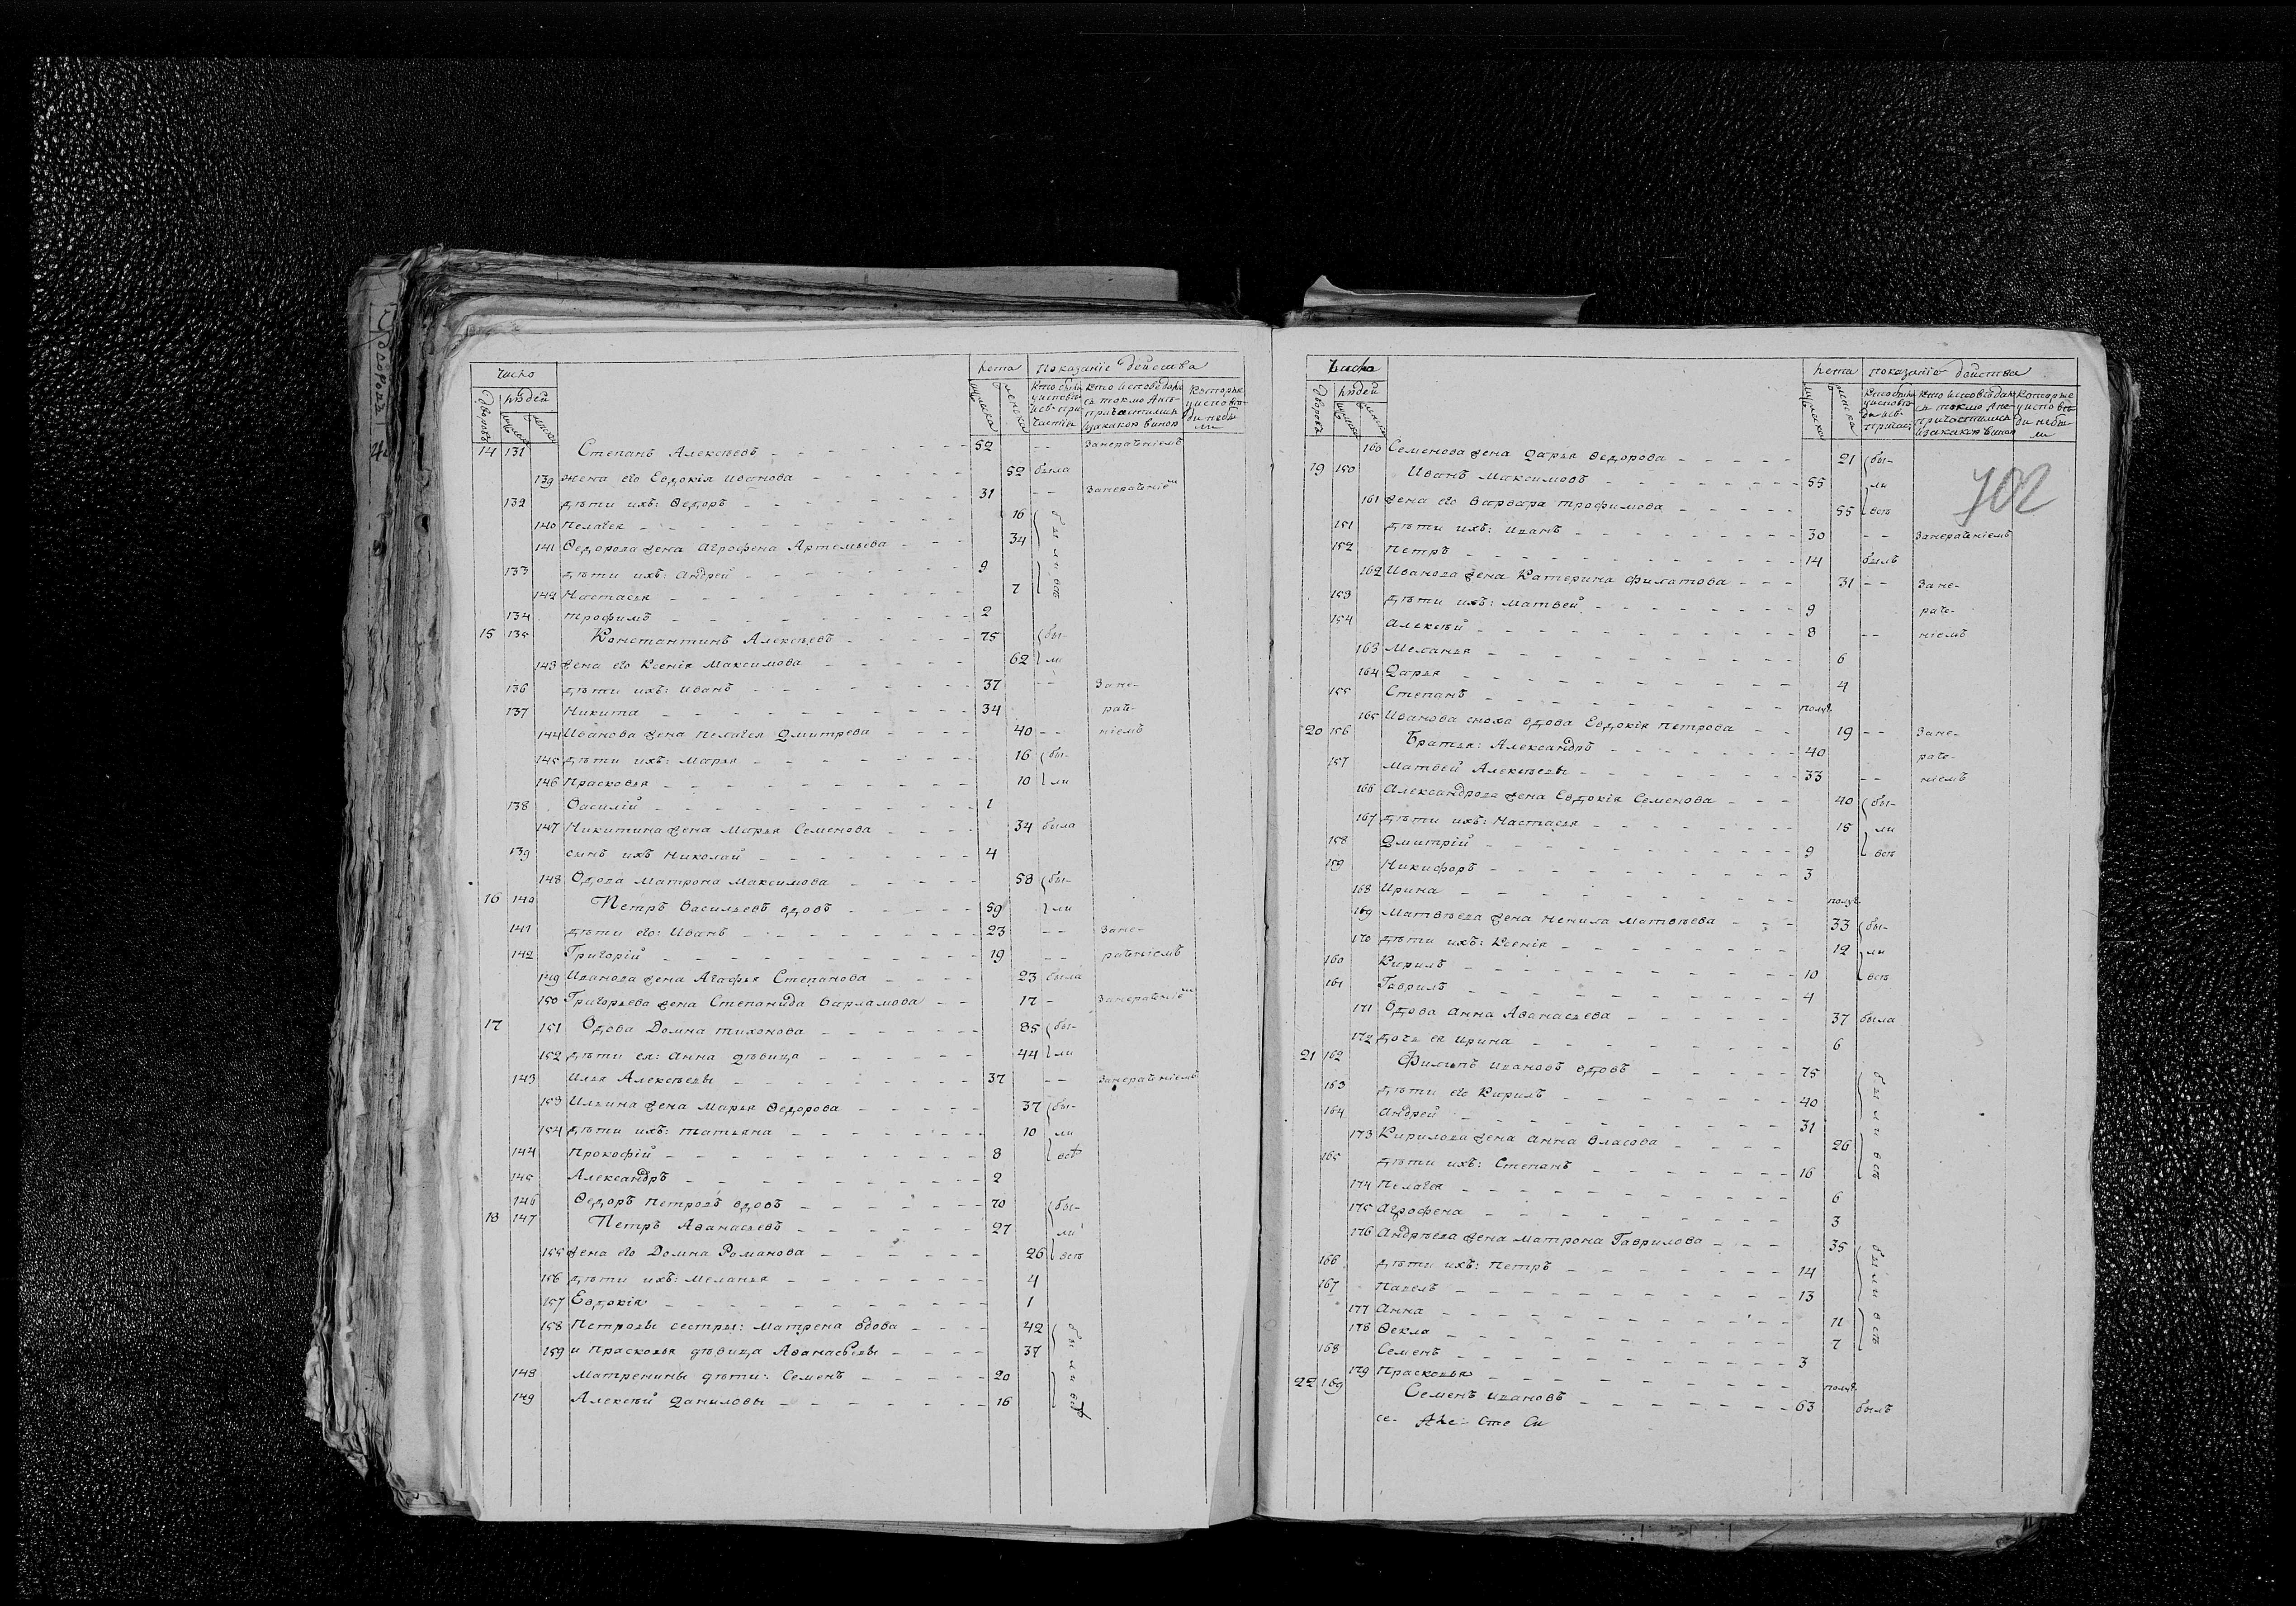 Число
Лета
Показаніе действа
Дворовъ
Людей
мужска
женска
мужска
женска
14 131 Степанъ Алексѣевъ 52 Занераченіемъ
139 жена его Евдокія Иванова 52 была
132 дѣти ихъ: Ѳедоръ 31 Занераченіемъ
140 Пелагея 16
141 Ѳедорова жена Агрофена Артемьева 34 были всѣ
133 дѣти ихъ: Андрей 9
142 Настасья 7
134 Трофимъ 2
15 135 Константинъ Алексѣевъ 75 бы-
143 жена его Ксенія Максимова 62 ли
136 дѣти ихъ: Иванъ 37 Зане-
137 Никита 34 раче-
144 Иванова жена Пелагея Дмитрева 40 ніемъ
145 дѣти ихъ: Марья 16 бы-
146 Прасковья 10 ли
138 Василій 1
147 Никитина жена Марья Семенова 34 была
139 сынъ ихъ Николай 4
148 Вдова Матрона Максимова 58 бы-
16 140 Петръ Васильевъ вдовъ 59 ли
141 дѣти его: Иванъ 23 Зане-
142 Григорій 19 раченіемъ
149 Иванова жена Агафья Степанова 23 была
150 Григорьева жена Степанида Варламова 17 Занераченіемъ
17 151 Вдова Домна Тихонова 85 бы-
152 дѣти ея: Анна дѣвица 44 ли
143 Илья Алексѣевы 37 Занераченіемъ
153 Ильина жена Марья Ѳедорова 37 бы-
154 дѣти ихъ: Татьяна 10 ли
144 Прокофій 8 всѣ
145 Александръ 2
146 Ѳедоръ Петровъ вдовъ 70 бы-
18 147 Петръ Аѳанасьевъ 27 ли
155 жена его Домна Романова 26 всѣ
156 дѣти ихъ: Меланья 4
157 Евдокія 1
158 Петровы сестры: Матрена вдова 42
159 и Прасковья дѣвица Аѳанасьевы 37 были всѣ
148 Матренины дѣти: Семенъ 20
149 Алексѣй Даниловы 16
Число
Лета
показаніе действа
Дворовъ
Людей
мужска
женска
мужска
женска
702
160 Семенова жена Дарья Ѳедорова 21 бы-
19 150 Иванъ Максимовъ 55 ли
161 жена его Варвара Трофимова 55 всѣ
151 дѣти ихъ: Иванъ 30 Занераченіемъ
152 Петръ 14 былъ
162 Иванова жена Катерина Филатова 31 Зане-
153 дѣти ихъ: Матвей 9 раче-
154 Алексѣй 8 ніемъ
163 Меланья 6
164 Дарья 4
155 Степанъ полуг.
165 Иванова сноха вдова Евдокія Петрова 19 Зане-
20 156 Братья: Александръ 40 раче-
157 Матвей Алексѣевы 33 ніемъ
166 Александрова жена Евдокія Семенова 40 бы-
167 дѣти ихъ: Настасья 15 ли
158 Дмитрій 9 всѣ
159 Никифоръ 3
168 Ирина полуг.
169 Матвѣева жена Ненила Матвѣева 33 бы-
170 дѣти ихъ: Ксенія 12 ли
160 Кирилъ 10 всѣ
161 Гаврилъ 4
171 Вдова Анна Аѳанасьева 37 была
172 дочь ея Ирина 6
21 162 Филипъ Ивановъ вдовъ 75
163 дѣти его Кирилъ 40
164 Андрей 31 были всѣ
173 Кирилова жена Анна Власова 26
165 дѣти ихъ: Степанъ 16
174 Пелагея 6
175 Агрофена 3
176 Андрѣева жена Матрона Гаврилова 35
166 дѣти ихъ: Петръ 14
167 Павелъ 13 были всѣ
177 Анна 11
178 Ѳекла 7
168 Семенъ 3
179 Прасковья полуг.
22 169 Семенъ Ивановъ 63 былъ